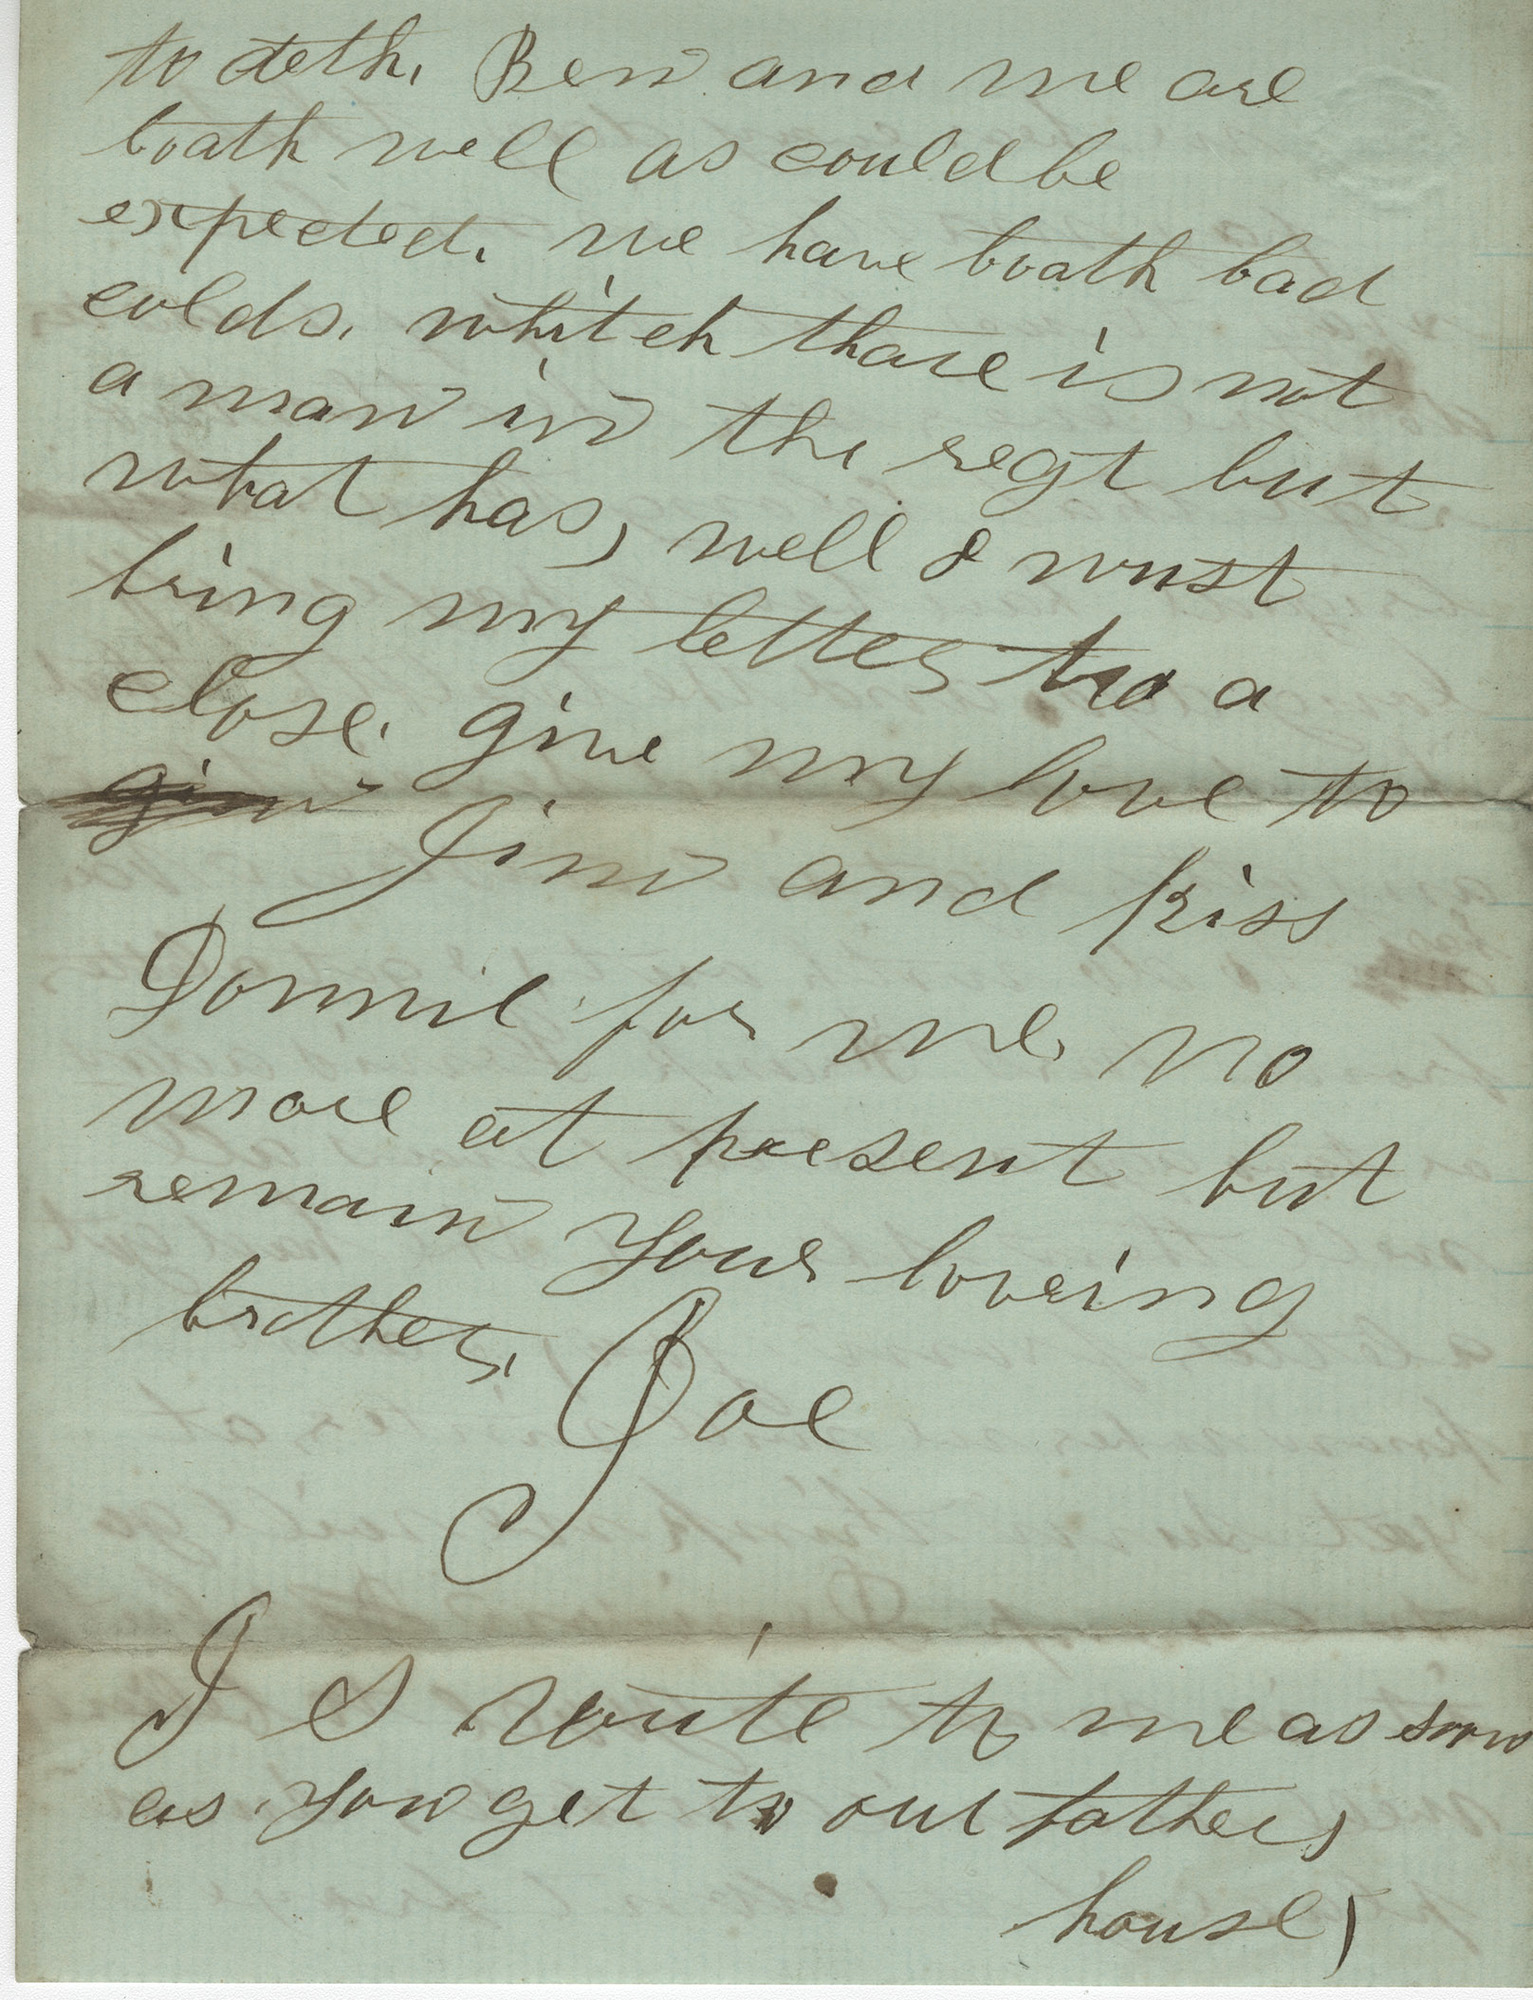 to deth. Ben and me are
boath well as could be
expected. we have boath bad
colds. whitch thare is not
a man in the regt but
what has, well I must
bring my letter to a
close. give my love to
Jim and kiss
Donnie for me. no
more at present but
remain your loveing
brother. Joe
P S write to me as soon
as you get to our fathers
house,